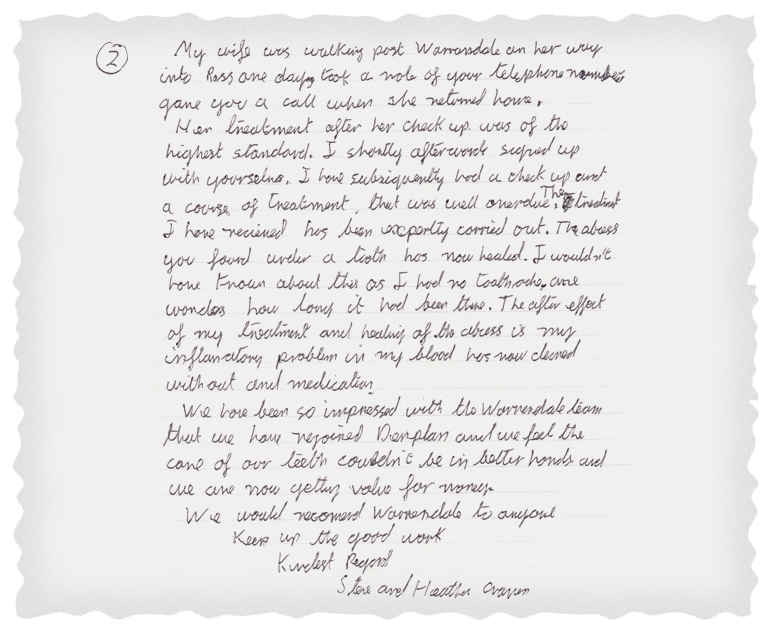 ②
My wife was walking past Warrendale on her way
into Ross one day, took a note of your telephone number
gave you a call when she returned home.
Her treatment after her check up was of the
highest standard. I shortly afterwards signed up
with yourselves. I have subsiquently had a check up and
a course of treatment, that was well overdue. The treatment
I have recieved has been expertly carried out. The abcess
you found under a tooth has now healed. I wouldn't
have known about this as I had no toothache, one
wonders how long it had been there. The after effect
of my treatment and healing of the abcess is my
inflamatory problem in my blood has now cleared
without and medication
We have been so impressed with the Warrendale team
that we have rejoined Denplan and we feel the
care of our teeth couldn't be in better hands and
we are now getting value for money.
We would recomend Warrendale to anyone
Keep up the good work
Kindest Regard
Steve and Heather